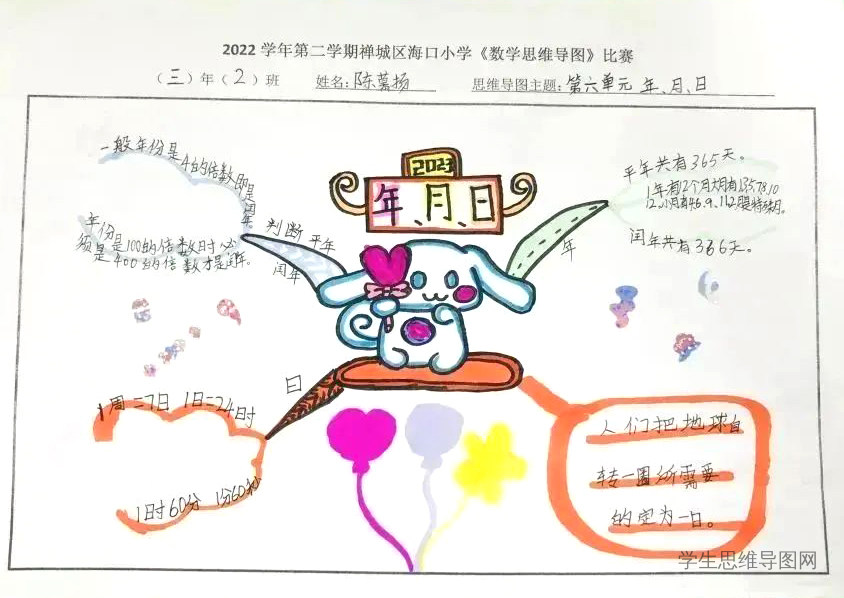 2022 学年第二学期禅城区海口小学《数学思维导图》比赛
（三）年（2）班 姓名: 陈薏扬 思维导图主题: 第六单元 年、月、日
2023
年、月、日
一般年份是4的倍数即是闰年。
年份是100的倍数时必
须是400的倍数才是闰年。
判断 平年
闰年
年
平年共有365天。
1年有12个月大月有1.3.5.7.8.10
12.小月有4.6.9.11.2是特殊月。
闰年共有366天。
日
1周=7日 1日=24时
1日时60分 1分60秒
人们把地球自
转一圈所需要
的定为一日。
学生思维导图网